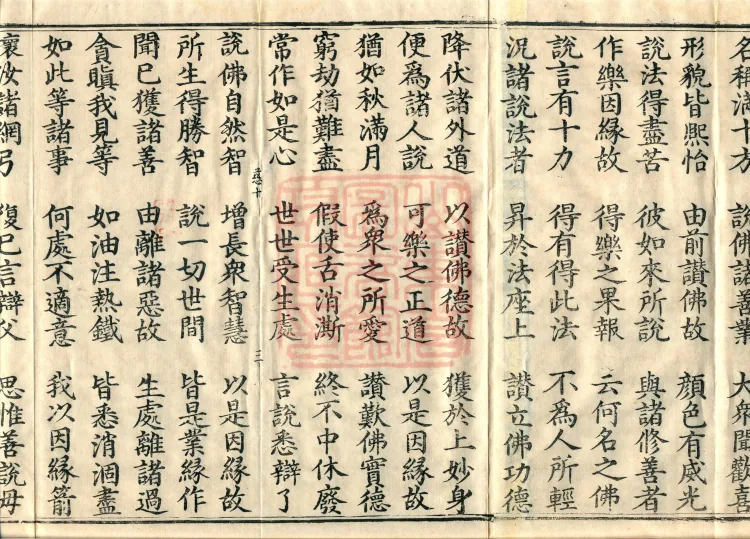 名稱滿十方 說佛諸善業 大衆聞歡喜
形貌皆熙怡 由前讃佛故 顔色有威光
說法得盡苦 彼如來所說 與諸修善者
作樂因縁故 得樂之果報 云何名之佛
說言有十力 得有得此法 不爲人所輕
況諸說法者 昇於法座上 讃立佛功德
降伏諸外道 以讃佛德故 獲於上妙身
便爲諸人說 可樂之正道 以是因縁故
猶如秋滿月 爲衆之所愛 讃歎佛實德
窮劫猶難盡 假使舌消澌 終不中休廢
常作如是心 世世受生處 言說悉辯了
說佛自然智 增長衆智慧 以是因縁故
所生得勝智 說一切世間 皆是業縁作
聞已獲諸善 由離諸惡故 生處離諸過
貪瞋我見等 如油注熱鐵 皆悉消涸盡
如此等諸事 何處不適意 我以因縁箭
壞汝諸網弓 復已言辯父 思惟善說毋
三